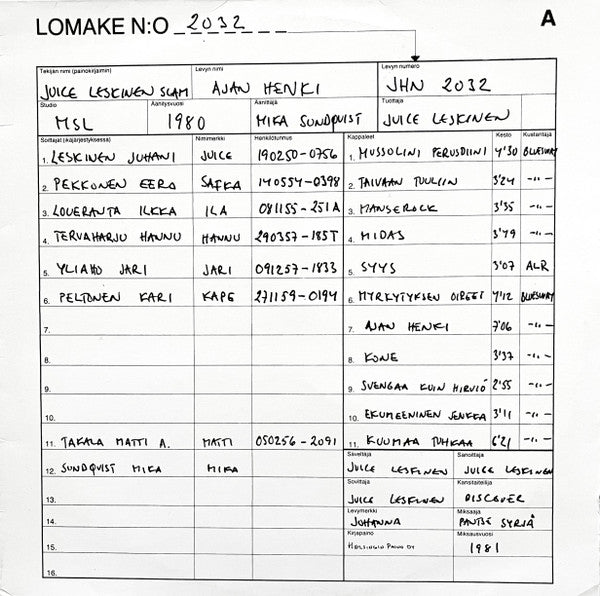 LOMAKE N:O 2032
A
Tekijän nimi (painokirjaimin) Levyn nimi Levyn numero
JUICE LESKINEN SLAM AJAN HENKI JHN 2032
Studio Äänitysvuosi Äänittäjä Tuottaja
MSL 1980 MIKA SUNDQVIST JUICE LESKINEN
Soittajat (ikäjärjestyksessä) Nimimerkki Henkilötunnus Kappaleet Kesto Kustantaja
1. LESKINEN JUHANI JUICE 190250-0756 1. MUSSOLINI PERUSDIINI 4'30 BLUEBERRY
2. PEKKONEN EERO SAFKA 140554-0398 2. TAIVAAN TUULIIN 3'24 -"-
3. LOUERANTA ILKKA ILA 081155-251A 3. MANSEROCK 3'35 -"-
4. TERVAHARJU HANNU HANNU 290357-185T 4. MIDAS 3'49 -"-
5. YLIAHO JARI JARI 091257-1833 5. SYYS 3'07 ALR
6. PELTONEN KARI KAPE 271159-0194 6. MYRKYTYKSEN OIREET 4'12
7. 7. AJAN HENKI 7'06 -"-
8. 8. KONE 3'37 -"-
9. 9. SVENGAA KUIN HIRVIÖ 2'55 -"-
10. 10. EKUMEENINEN JENKKA 3'11 -"-
11. TAKALA MATTI A. MATTI 050256-2091 11. KUUMAA TUHKAA 6'21 -"-
12. SUNDQVIST MIKA MIKA
Säveltäjä Sanoittaja
JUICE LESKINEN JUICE LESKINEN
13. Sovittaja Kansitaiteilija
JUICE LESKINEN DISCOVER
14. Levymerkki Miksaaja
JOHANNA PANTSE SYRJÄ
15. Kirjapaino Miksausvuosi
HELSINGIN PAINO OY 1981
16.